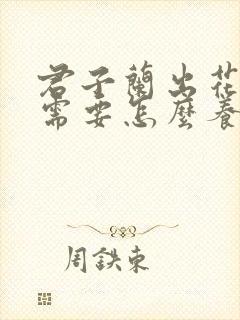 君子蘭出花
需要怎麼養
周鉄東